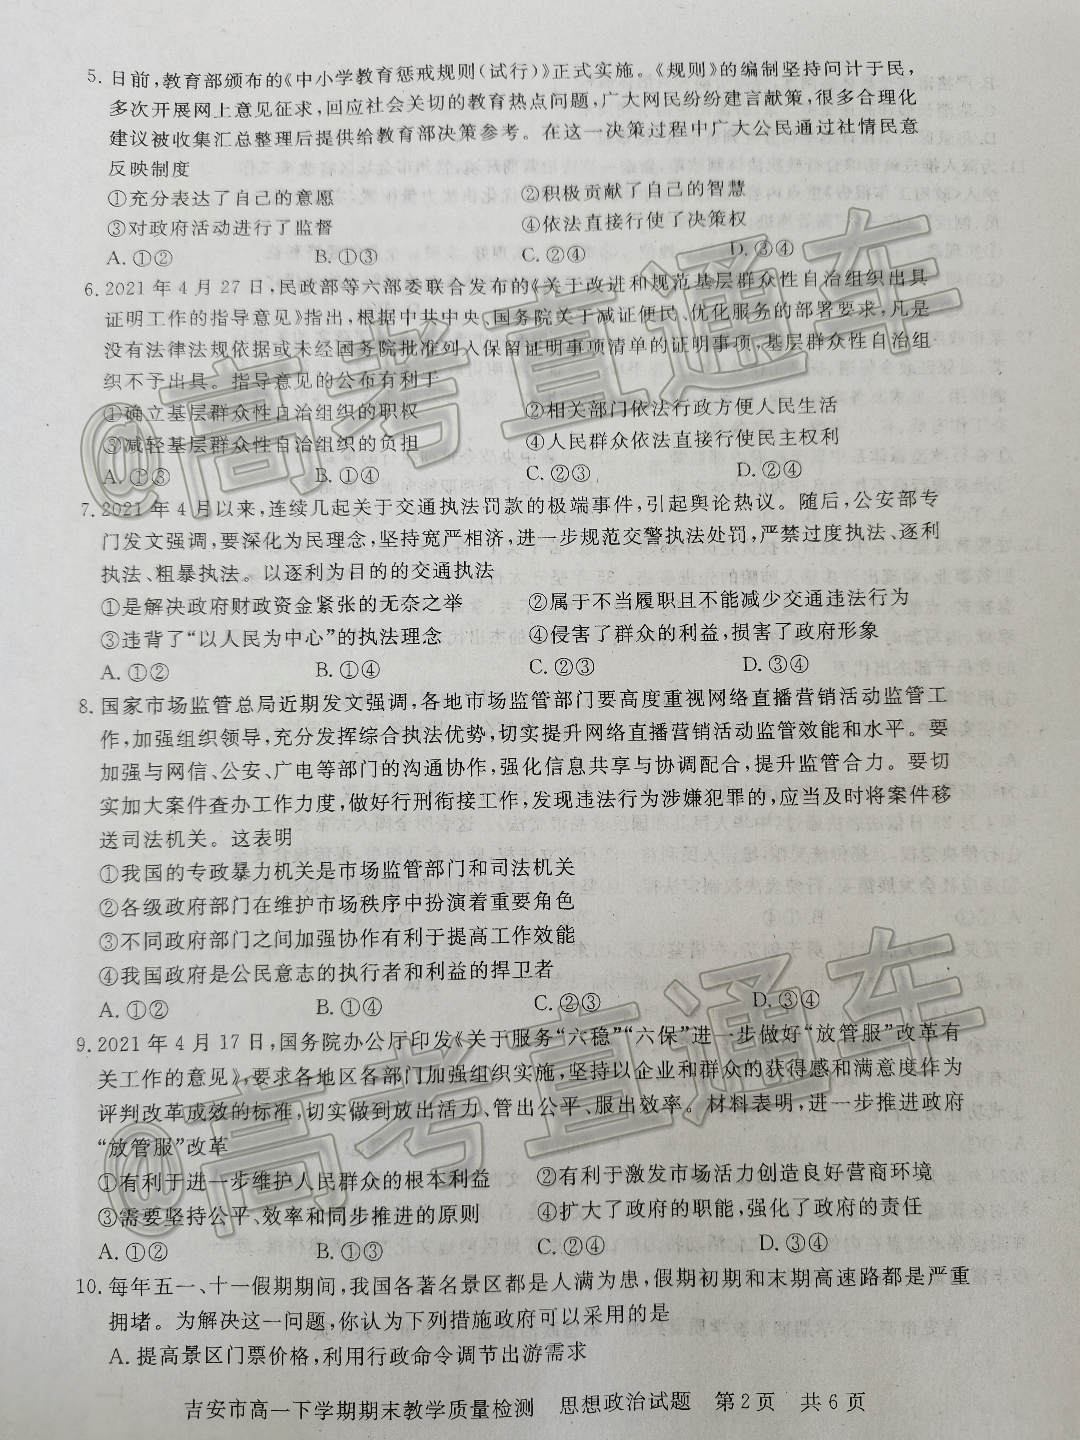 5. 日前,教育部颁布的《中小学教育惩戒规则(试行)》正式实施。《规则》的编制坚持问计于民,
多次开展网上意见征求,回应社会关切的教育热点问题,广大网民纷纷建言献策,很多合理化
建议被收集汇总整理后提供给教育部决策参考。在这一决策过程中广大公民通过社情民意
反映制度
①充分表达了自己的意愿 ②积极贡献了自己的智慧
③对政府活动进行了监督 ④依法直接行使了决策权
A. ①② B. ①③ C. ②④ D. ③④
6. 2021 年 4 月 27 日,民政部等六部委联合发布的《关于改进和规范基层群众性自治组织出具
证明工作的指导意见》指出,根据中共中央、国务院关于减证便民、优化服务的部署要求,凡是
没有法律法规依据或未经国务院批准列入保留证明事项清单的证明事项,基层群众性自治组
织不予出具。指导意见的公布有利于
①确立基层群众性自治组织的职权 ②相关部门依法行政方便人民生活
③减轻基层群众性自治组织的负担 ④人民群众依法直接行使民主权利
A. ①③ B. ①④ C. ②③ D. ②④
7. 2021 年 4 月以来,连续几起关于交通执法罚款的极端事件,引起舆论热议。随后,公安部专
门发文强调,要深化为民理念,坚持宽严相济,进一步规范交警执法处罚,严禁过度执法、逐利
执法、粗暴执法。以逐利为目的的交通执法
①是解决政府财政资金紧张的无奈之举 ②属于不当履职且不能减少交通违法行为
③违背了“以人民为中心”的执法理念 ④侵害了群众的利益,损害了政府形象
A. ①② B. ①④ C. ②③ D. ③④
8. 国家市场监管总局近期发文强调,各地市场监管部门要高度重视网络直播营销活动监管工
作,加强组织领导,充分发挥综合执法优势,切实提升网络直播营销活动监管效能和水平。要
加强与网信、公安、广电等部门的沟通协作,强化信息共享与协调配合,提升监管合力。要切
实加大案件查办工作力度,做好行刑衔接工作,发现违法行为涉嫌犯罪的,应当及时将案件移
送司法机关。这表明
①我国的专政暴力机关是市场监管部门和司法机关
②各级政府部门在维护市场秩序中扮演着重要角色
③不同政府部门之间加强协作有利于提高工作效能
④我国政府是公民意志的执行者和利益的捍卫者
A. ①② B. ①④ C. ②③ D. ③④
9. 2021 年 4 月 17 日,国务院办公厅印发《关于服务“六稳”“六保”进一步做好“放管服”改革有
关工作的意见》,要求各地区各部门加强组织实施,坚持以企业和群众的获得感和满意度作为
评判改革成效的标准,切实做到放出活力、管出公平、服出效率。材料表明,进一步推进政府
“放管服”改革
①有利于进一步维护人民群众的根本利益 ②有利于激发市场活力创造良好营商环境
③需要坚持公平、效率和同步推进的原则 ④扩大了政府的职能,强化了政府的责任
A. ①② B. ①③ C. ②④ D. ③④
10. 每年五一、十一假期期间,我国各著名景区都是人满为患,假期初期和末期高速路都是严重
拥堵。为解决这一问题,你认为下列措施政府可以采用的是
A. 提高景区门票价格,利用行政命令调节出游需求
吉安市高一下学期期末教学质量检测 思想政治试题 第 2 页 共 6 页
@高考直通车
@高考直通车